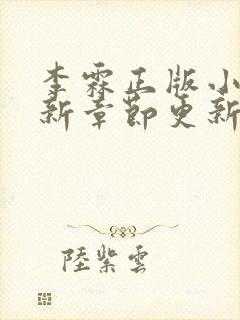 李霖正版小
新章節更新
陸紫雲